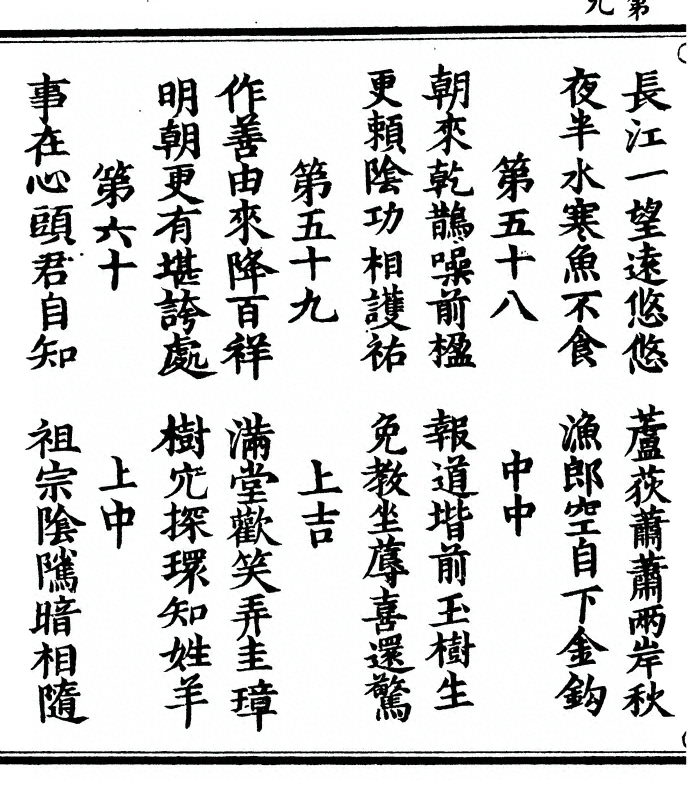 第
九
長江一望遠悠悠　蘆荻蕭蕭兩岸秋
夜半水寒魚不食　漁郎空自下金鈎
第五十八　中中
朝來乾鵲噪前楹　報道堦前玉樹生
更賴陰功相護祐　免教坐蓐喜還驚
第五十九　上吉
作善由來降百祥　滿堂歡笑弄圭璋
明朝更有堪誇處　樹穴探環知姓羊
第六十　上中
事在心頭君自知　祖宗陰隲暗相隨